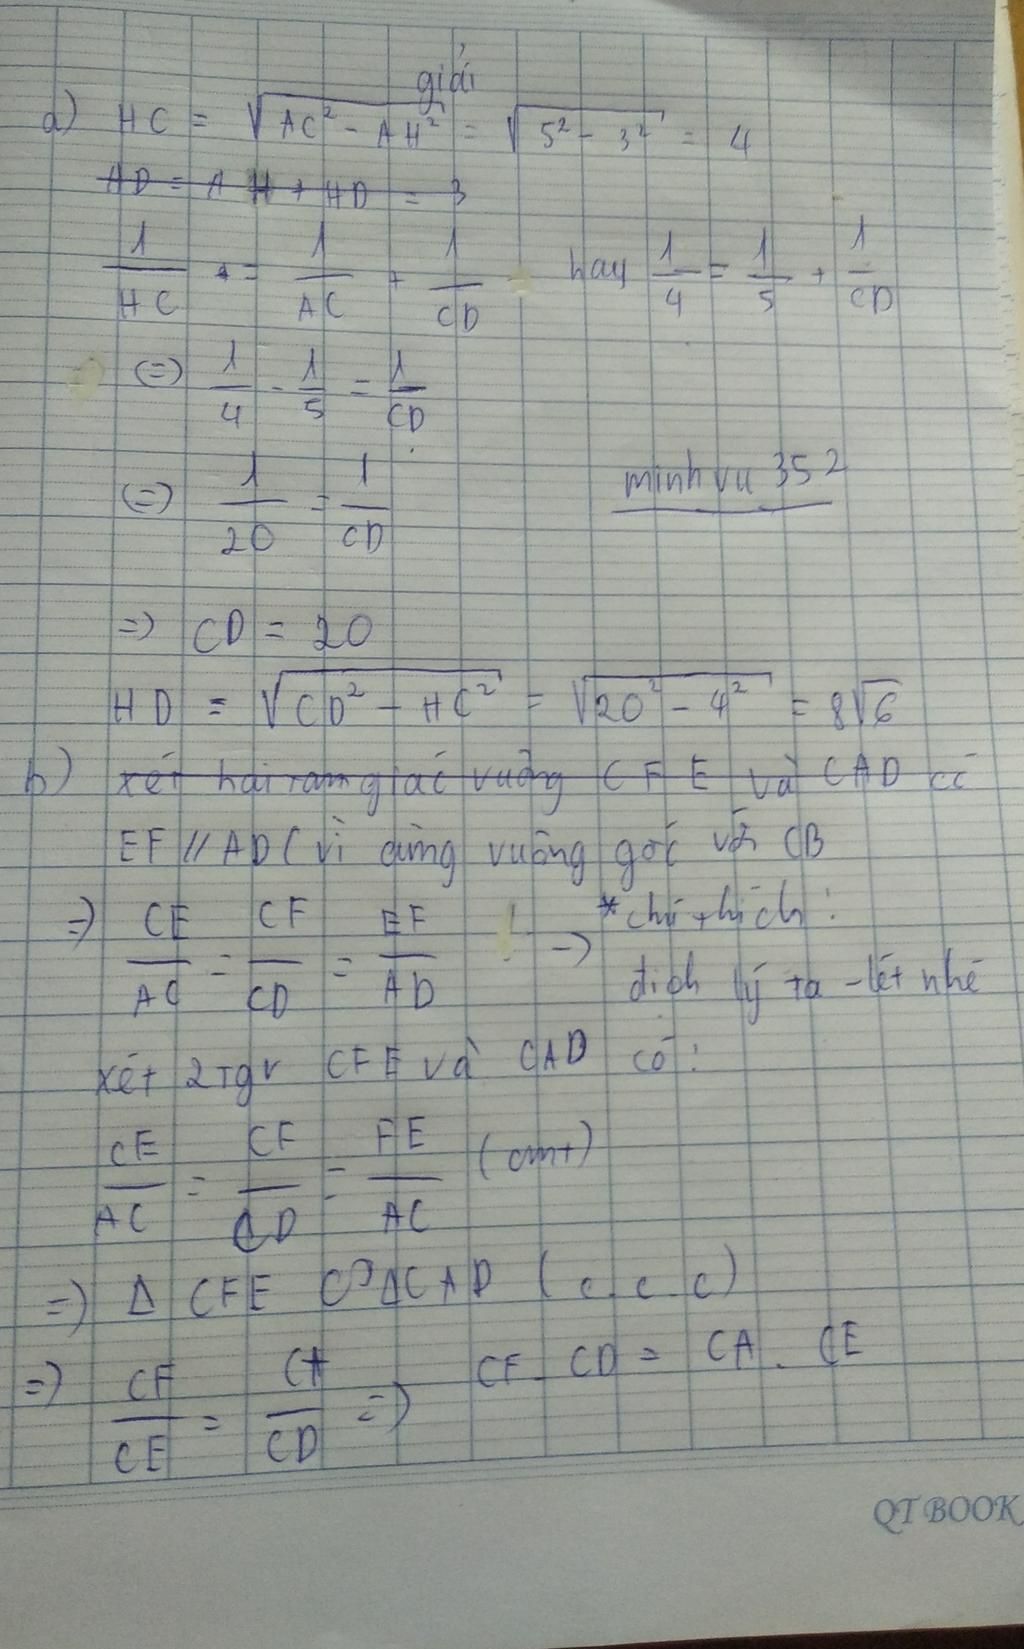 giải
a) HC = √(AC² - AH²) = √(5² - 3²) = 4
AD = AH + HD = 3
1/HC = 1/AC + 1/CD hay 1/4 = 1/5 + 1/CD
(=) 1/4 - 1/5 = 1/CD
(=) 1/20 = 1/CD
minh vu 352
=) CD = 20
HD = √(CD² - HC²) = √(20² - 4²) = 8√6
b) xét hai tam giác vuông CFE và CAD có
EF // AD ( vì cùng vuông góc với CB
=) CE/AC = CF/CD = EF/AD -) * chú thích :
định lý ta-lét nhé
xét 2 tgv CFE và CAD có :
CE/AC = CF/CD = FE/AC (cmt)
=) Δ CFE ∽ ΔCAD ( c . c . c )
=) CF/CE = CA/CD =) CF . CD = CA . CE
QT BOOK